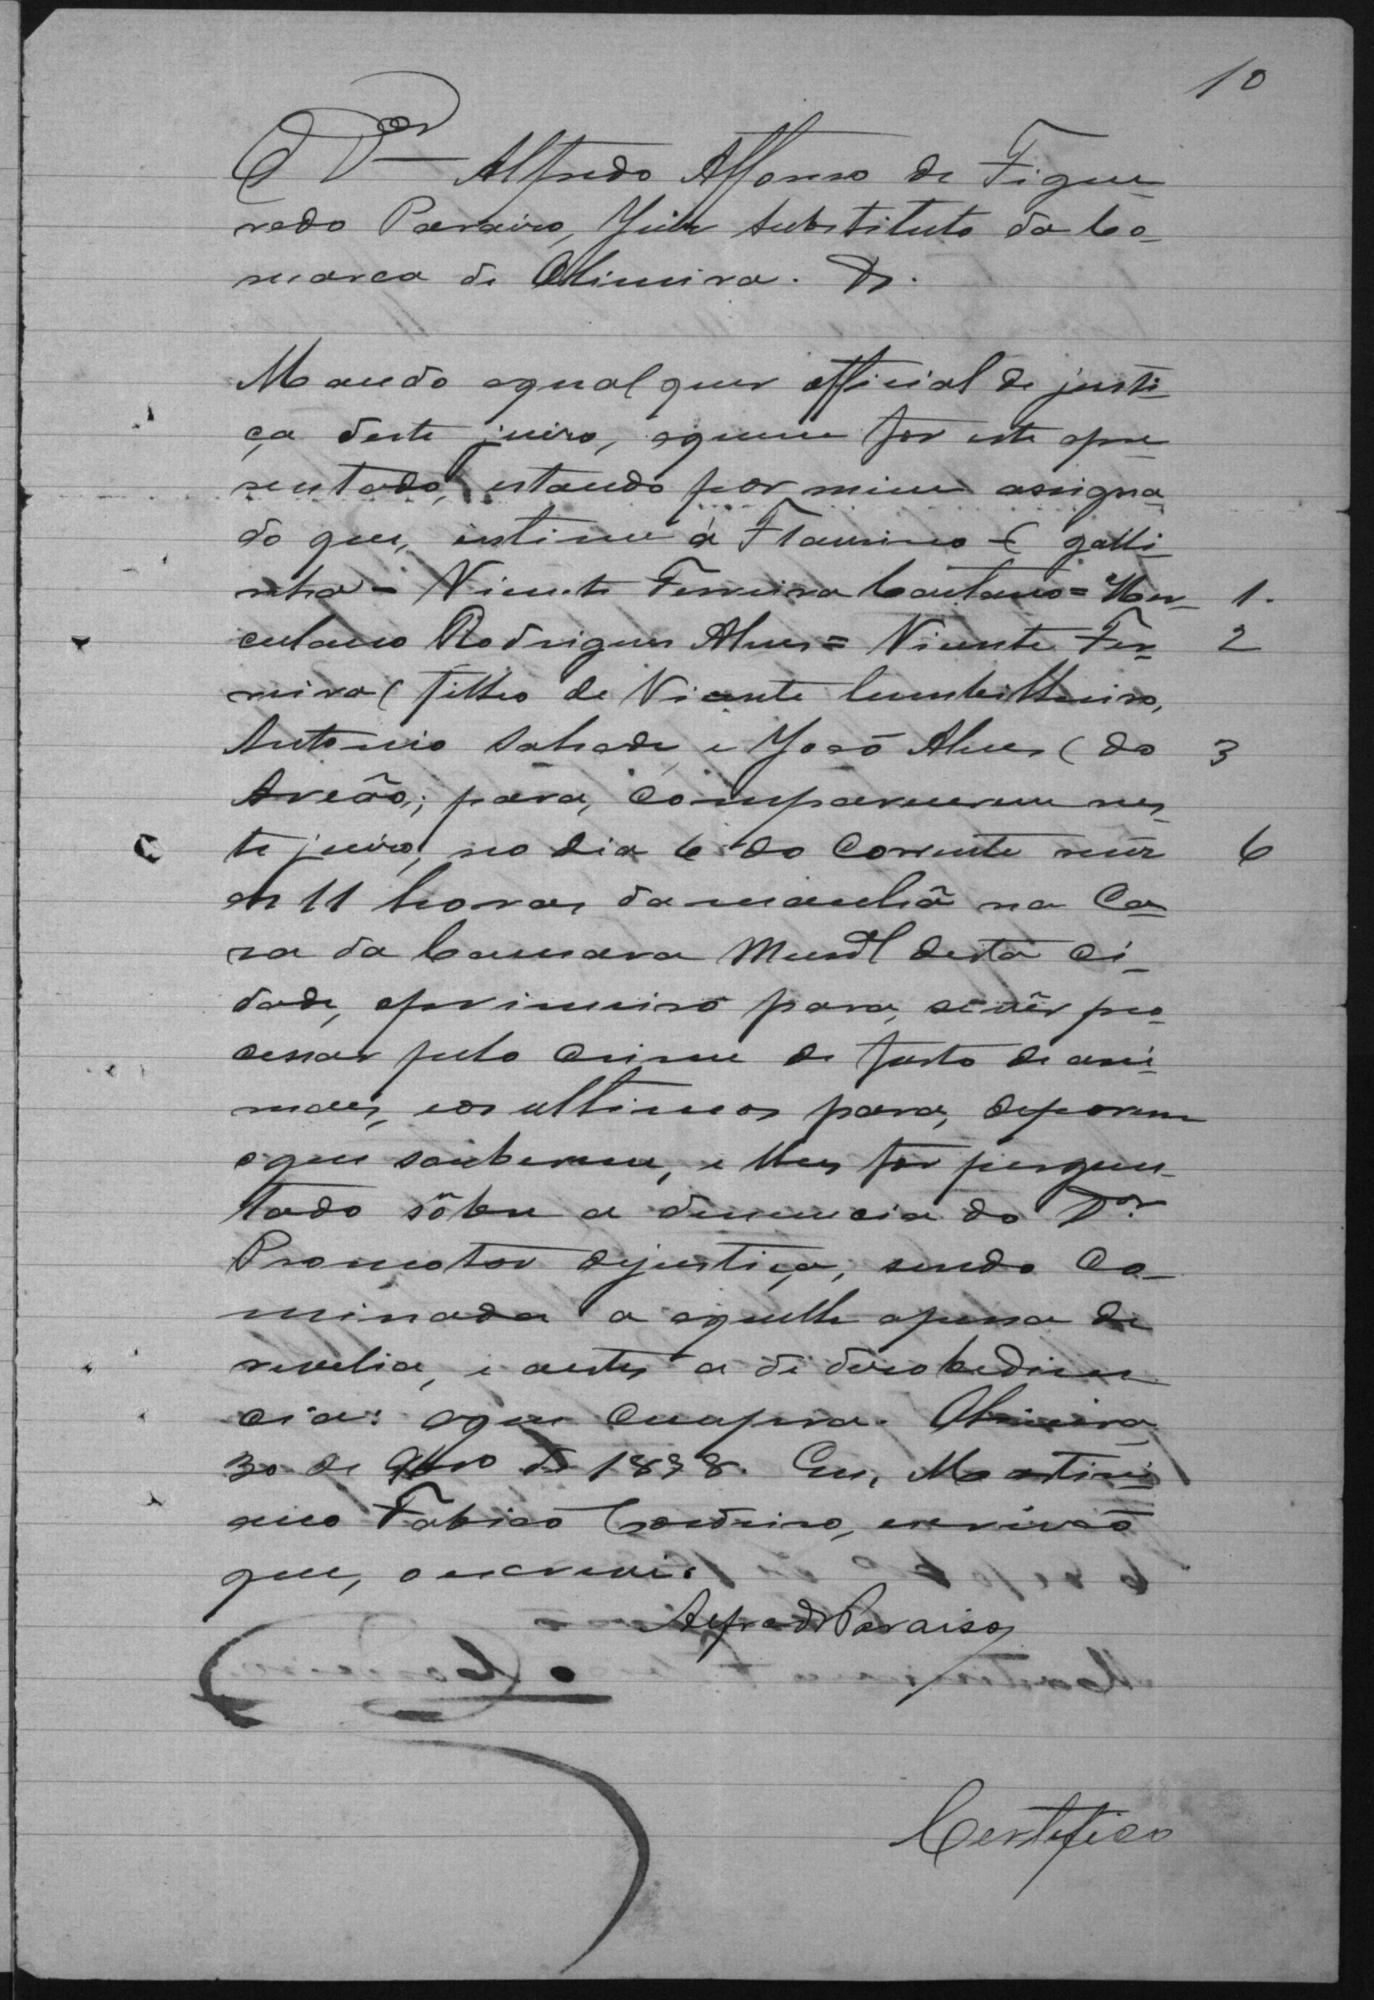 10
O Dor Alfredo Affonso de Figue
redo Paraizo, Juiz substituto da Co-
marca de Oliveira. &.
Mando aqualquer official de justi-
ça deste juizo, aquem for este apre
sentado, estando por mim assigna-
do que, intime á Flausino ( galli-
nha = Vicente Ferreira Caetano = Her- 1.
culano Rodrigues Alves = Vicente Fer- 2
reira ( filho de Vicente
Antonio e João Alves ( do 3
Areão; para, comparecerem nes-
te juizo, no dia 6 do corrente mez 6
as 11 horas da manhã na Ca-
za da Camara Munal desta ci-
dade, oprimeiro para, se vêr pro-
cessar pelo crime de furto de ani-
maes, eos ultimos para, deporem
oque souberem, e lhes for pergun-
tado sôbre a denuncia do Dor
Promotor dejustiça, sendo co-
minada a aquelle apena de
revelia, e aestes a de desobedien
cia: oque cumpra. Oliveira
30 de 9bro de 1898. Eu, Martini
ano Fabião Cordeiro, escrivão
que, o escrevi.
Alfredo Paraiso
Certifico